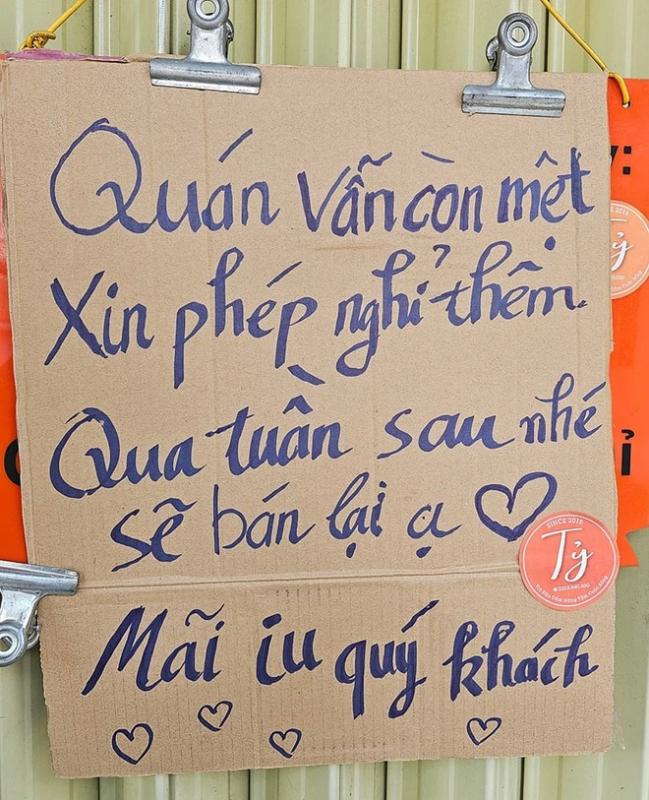 Quán vẫn còn mệt
Xin phép nghỉ thêm.
Qua tuần sau nhé
sẽ bán lại ạ
SINCE 2018
Tỷ
Mãi iu quý khách